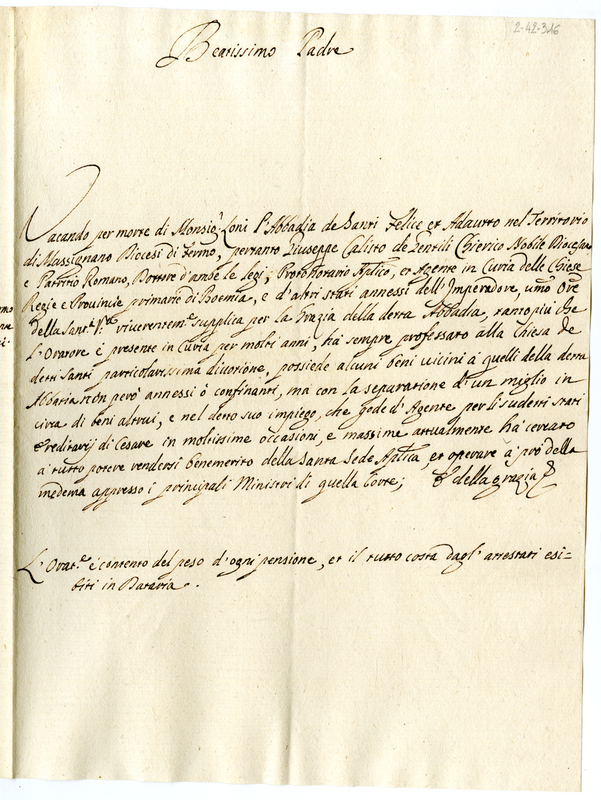 2-42-316
Beatissimo Padre
Vacando per morte di Monsig.r Loni l'Abbadia de Santi Felice et Adautto nel Territorio
di Massignano Diocesi di Fermo, pertanto Giuseppe Calisto de Gentili Chierico Nobile Diocesano
e Patritio Romano, Dottore d'ambe le legi, Protonotario Aplico, et Agente in Curia delle Chiese
Regie e Provincie primarie di Boemia, e d'altri stati annessi dell'Imperadore, umo Ore
della Sant.a V.ra riverentem.e supplica per la Grazia della detta Abbadia, tanto più che
L'Oratore è presente in Curia per molti anni, ha sempre professato alla Chiesa de
detti Santi particolarissima divotione, possiede alcuni beni vicini à quelli della detta
Abbatia non però annessi ò confinanti, ma con la separatione d'un miglio in
circa di beni altrui, e nel detto suo impiego, che gode d'Agente per li sudetti stati
Ereditarij di Cesare in moltissime occasioni, e massime attualmente ha cercato
a tutto potere rendersi benemerito della Santa Sede Aplica, et operare à prò della
medema appresso i principali Ministri di quella Corte; della grazia
L'Orat.e è contento del peso d'ogni pensione, et il tutto costa dagl'attestati esi-
biti in Dataria.